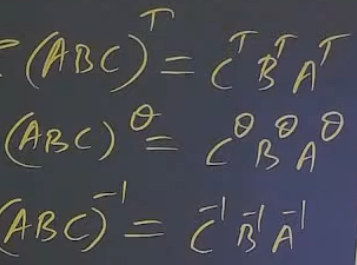 (ABC)^T = C^T B^T A^T
(ABC)^θ = C^θ B^θ A^θ
(ABC)^-1 = C^-1 B^-1 A^-1